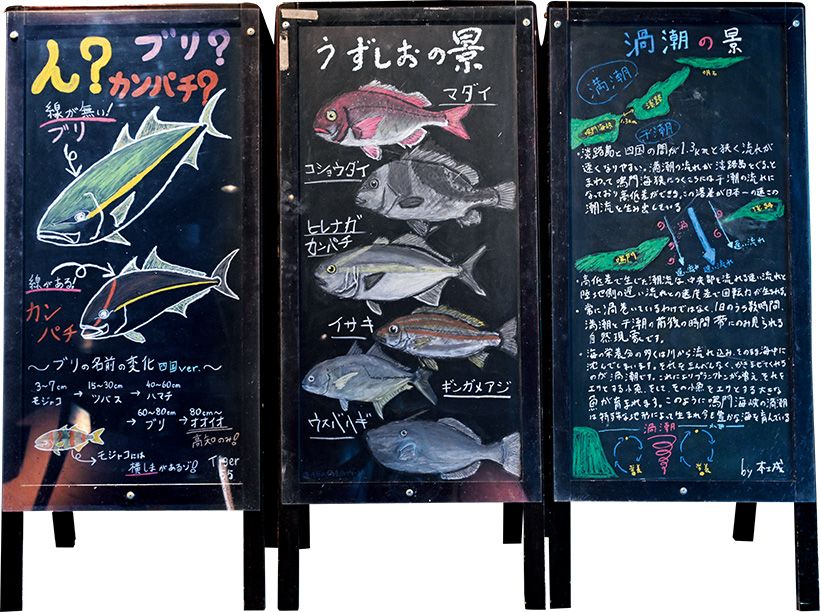 ん?
ブリ?
カンパチ?
線が無い!
ブリ
線がある!
カン
パチ
～ブリの名前の変化 四国ver.～
3~7cm
モジャコ
→
15~30cm
ツバス
→
40~60cm
ハマチ
→
60~80cm
ブリ
→
80cm~
オオイオ
高知のみ!
モジャコには
横しまがあるゾ!
うずしおの景
マダイ
コショウダイ
ヒレナガ
カンパチ
イサキ
ギンガメアジ
ウスバハギ
渦潮の景
満潮
明石
淡路
鳴門海峡
1.3km
干潮
・淡路島と四国の間が1.3kmと狭く流れが
速くなりやすい。満潮の流れが淡路島をぐるっと
まわって鳴門海峡につくころには干潮の流れに
なっており高低差ができる。この落差が日本一速い
潮流を生み出している
淡路
鳴門
速い流れ
・高低差で生じた潮流は、中央部を流れる速い流れと
陸よりの遅い流れとの速度差で回転力が生まれる。
・常に渦巻いているわけではなく、1日のうち数時間、
満潮と干潮の前後の時間帯にのみ見られる
自然現象です。
・海の栄養分の多くは川から流れ込み、そのまま海中に
沈んでしまいます。
のが渦潮です。これによりプランクトンが増え、それを
エサとする小魚、そして、その小魚をエサとする大きな
魚が育まれます。このように鳴門海峡の渦潮
は特殊な地形によって生まれ、今も豊かな海を育んでいる
渦潮
栄養
栄養
by